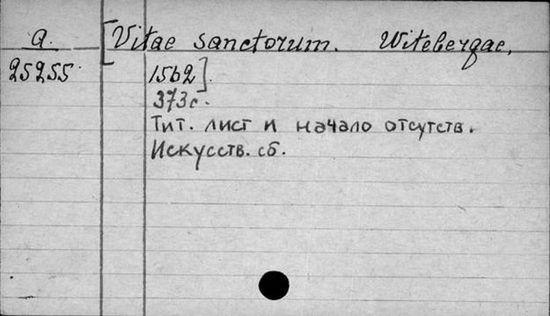 а. [Vitae sanctorum. Witebergae,
25255. 1562].
373с.
Тит. лист и начало отсутств.
Искусств. сб.